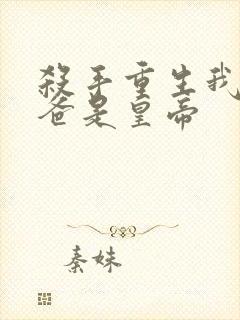 殺手重生我
爸是皇帝
秦妹